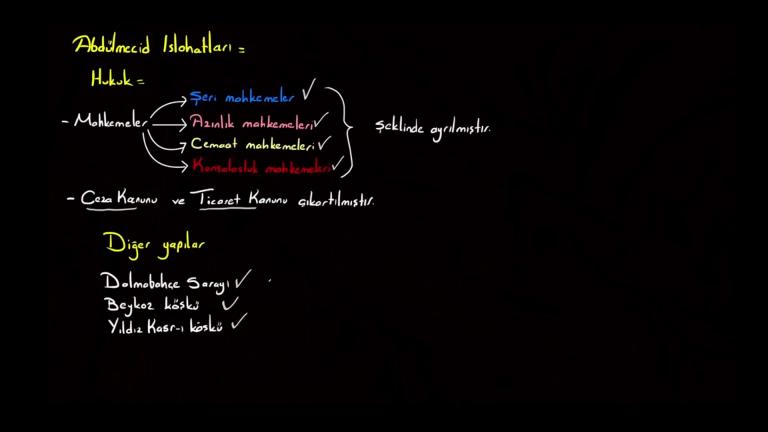 Abdülmecid Islahatları =
Hukuk =
Şeri mahkemeler ✓
- Mahkemeler
Azınlık mahkemeleri ✓
Cemaat mahkemeleri ✓
Konsolosluk mahkemeleri ✓
şeklinde ayrılmıştır.
- Ceza Kanunu ve Ticaret Kanunu çıkartılmıştır.
Diğer yapılar
Dolmabahçe Sarayı ✓
Beykoz köşkü ✓
Yıldız Kasr-ı köşkü ✓